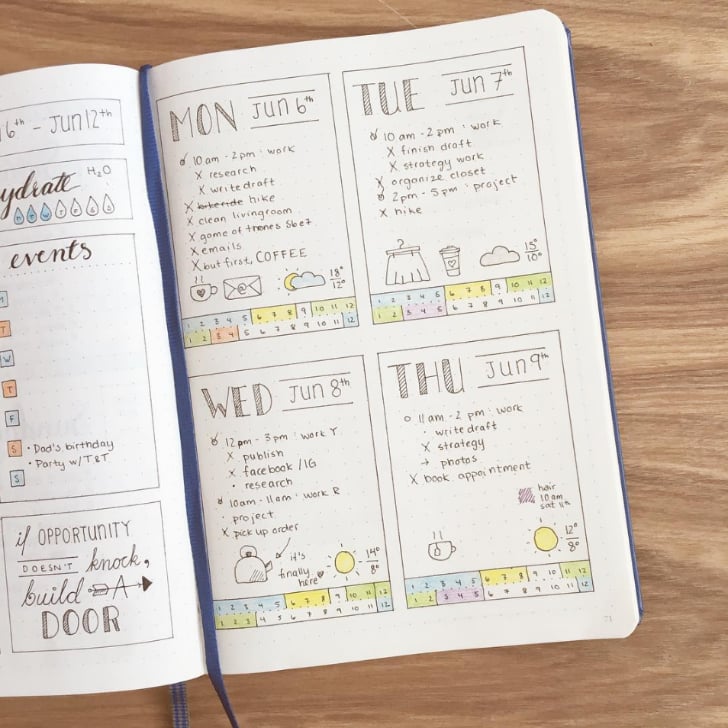 6th - Jun 12th
ydrate H2O
M T W T F S S
events
M
T
W
T
F
S • Dad's birthday
• Party w/ T&T
S
if OPPORTUNITY
DOESN'T knock,
build A
DOOR
MON Jun 6th
10 am - 2 pm : work
X research
X write draft
X bikeride hike
X clean livingroom
X game of thrones S6e7
X emails
X but first, COFFEE
@
18°
12°
1 2 3 4 5 6 7 8 9 10 11 12
1 2 3 4 5 6 7 8 9 10 11 12
TUE Jun 7th
10 am - 2 pm : work
X finish draft
X strategy work
X organize closet
2pm - 5pm : project
X hike
15°
10°
1 2 3 4 5 6 7 8 9 10 11 12
1 2 3 4 5 6 7 8 9 10 11 12
WED Jun 8th
12 pm - 3 pm : work Y
X publish
X facebook / IG
• research
10 am - 11 am : work R
project
X pick up order
it's
finally
here
14°
8°
1 2 3 4 5 6 7 8 9 10 11 12
1 2 3 4 5 6 7 8 9 10 11 12
THU Jun 9th
11 am - 2 pm : work
write draft
X strategy
→ photos
X book appointment
hair
10 am
sat 11th
12°
8°
1 2 3 4 5 6 7 8 9 10 11 12
1 2 3 4 5 6 7 8 9 10 11 12
71